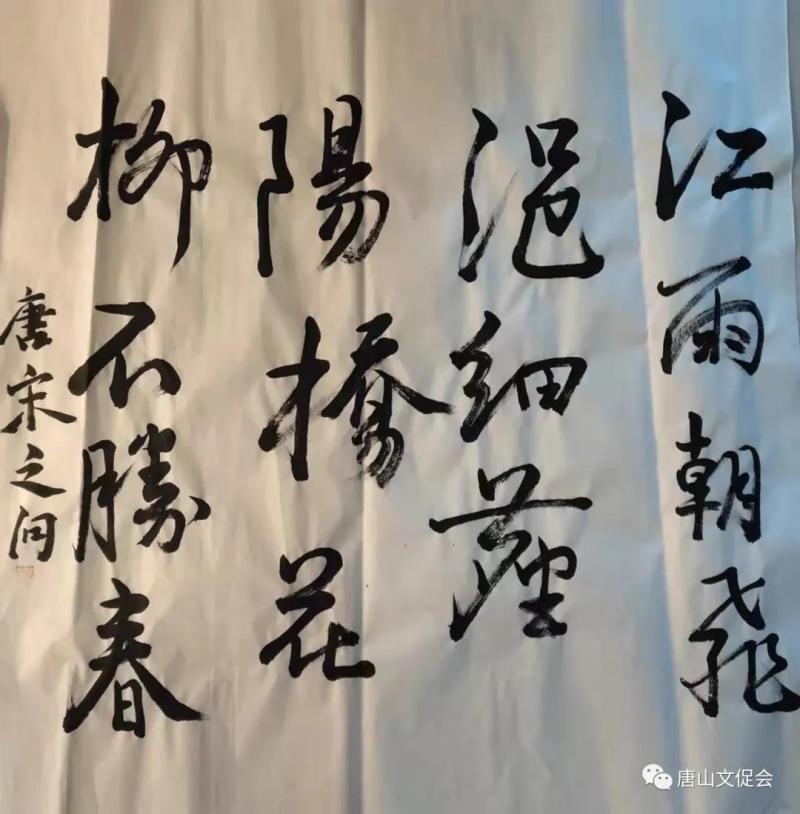 江雨朝飛
浥細塵
陽橋花
柳不勝春
唐宋之问
唐山文促会